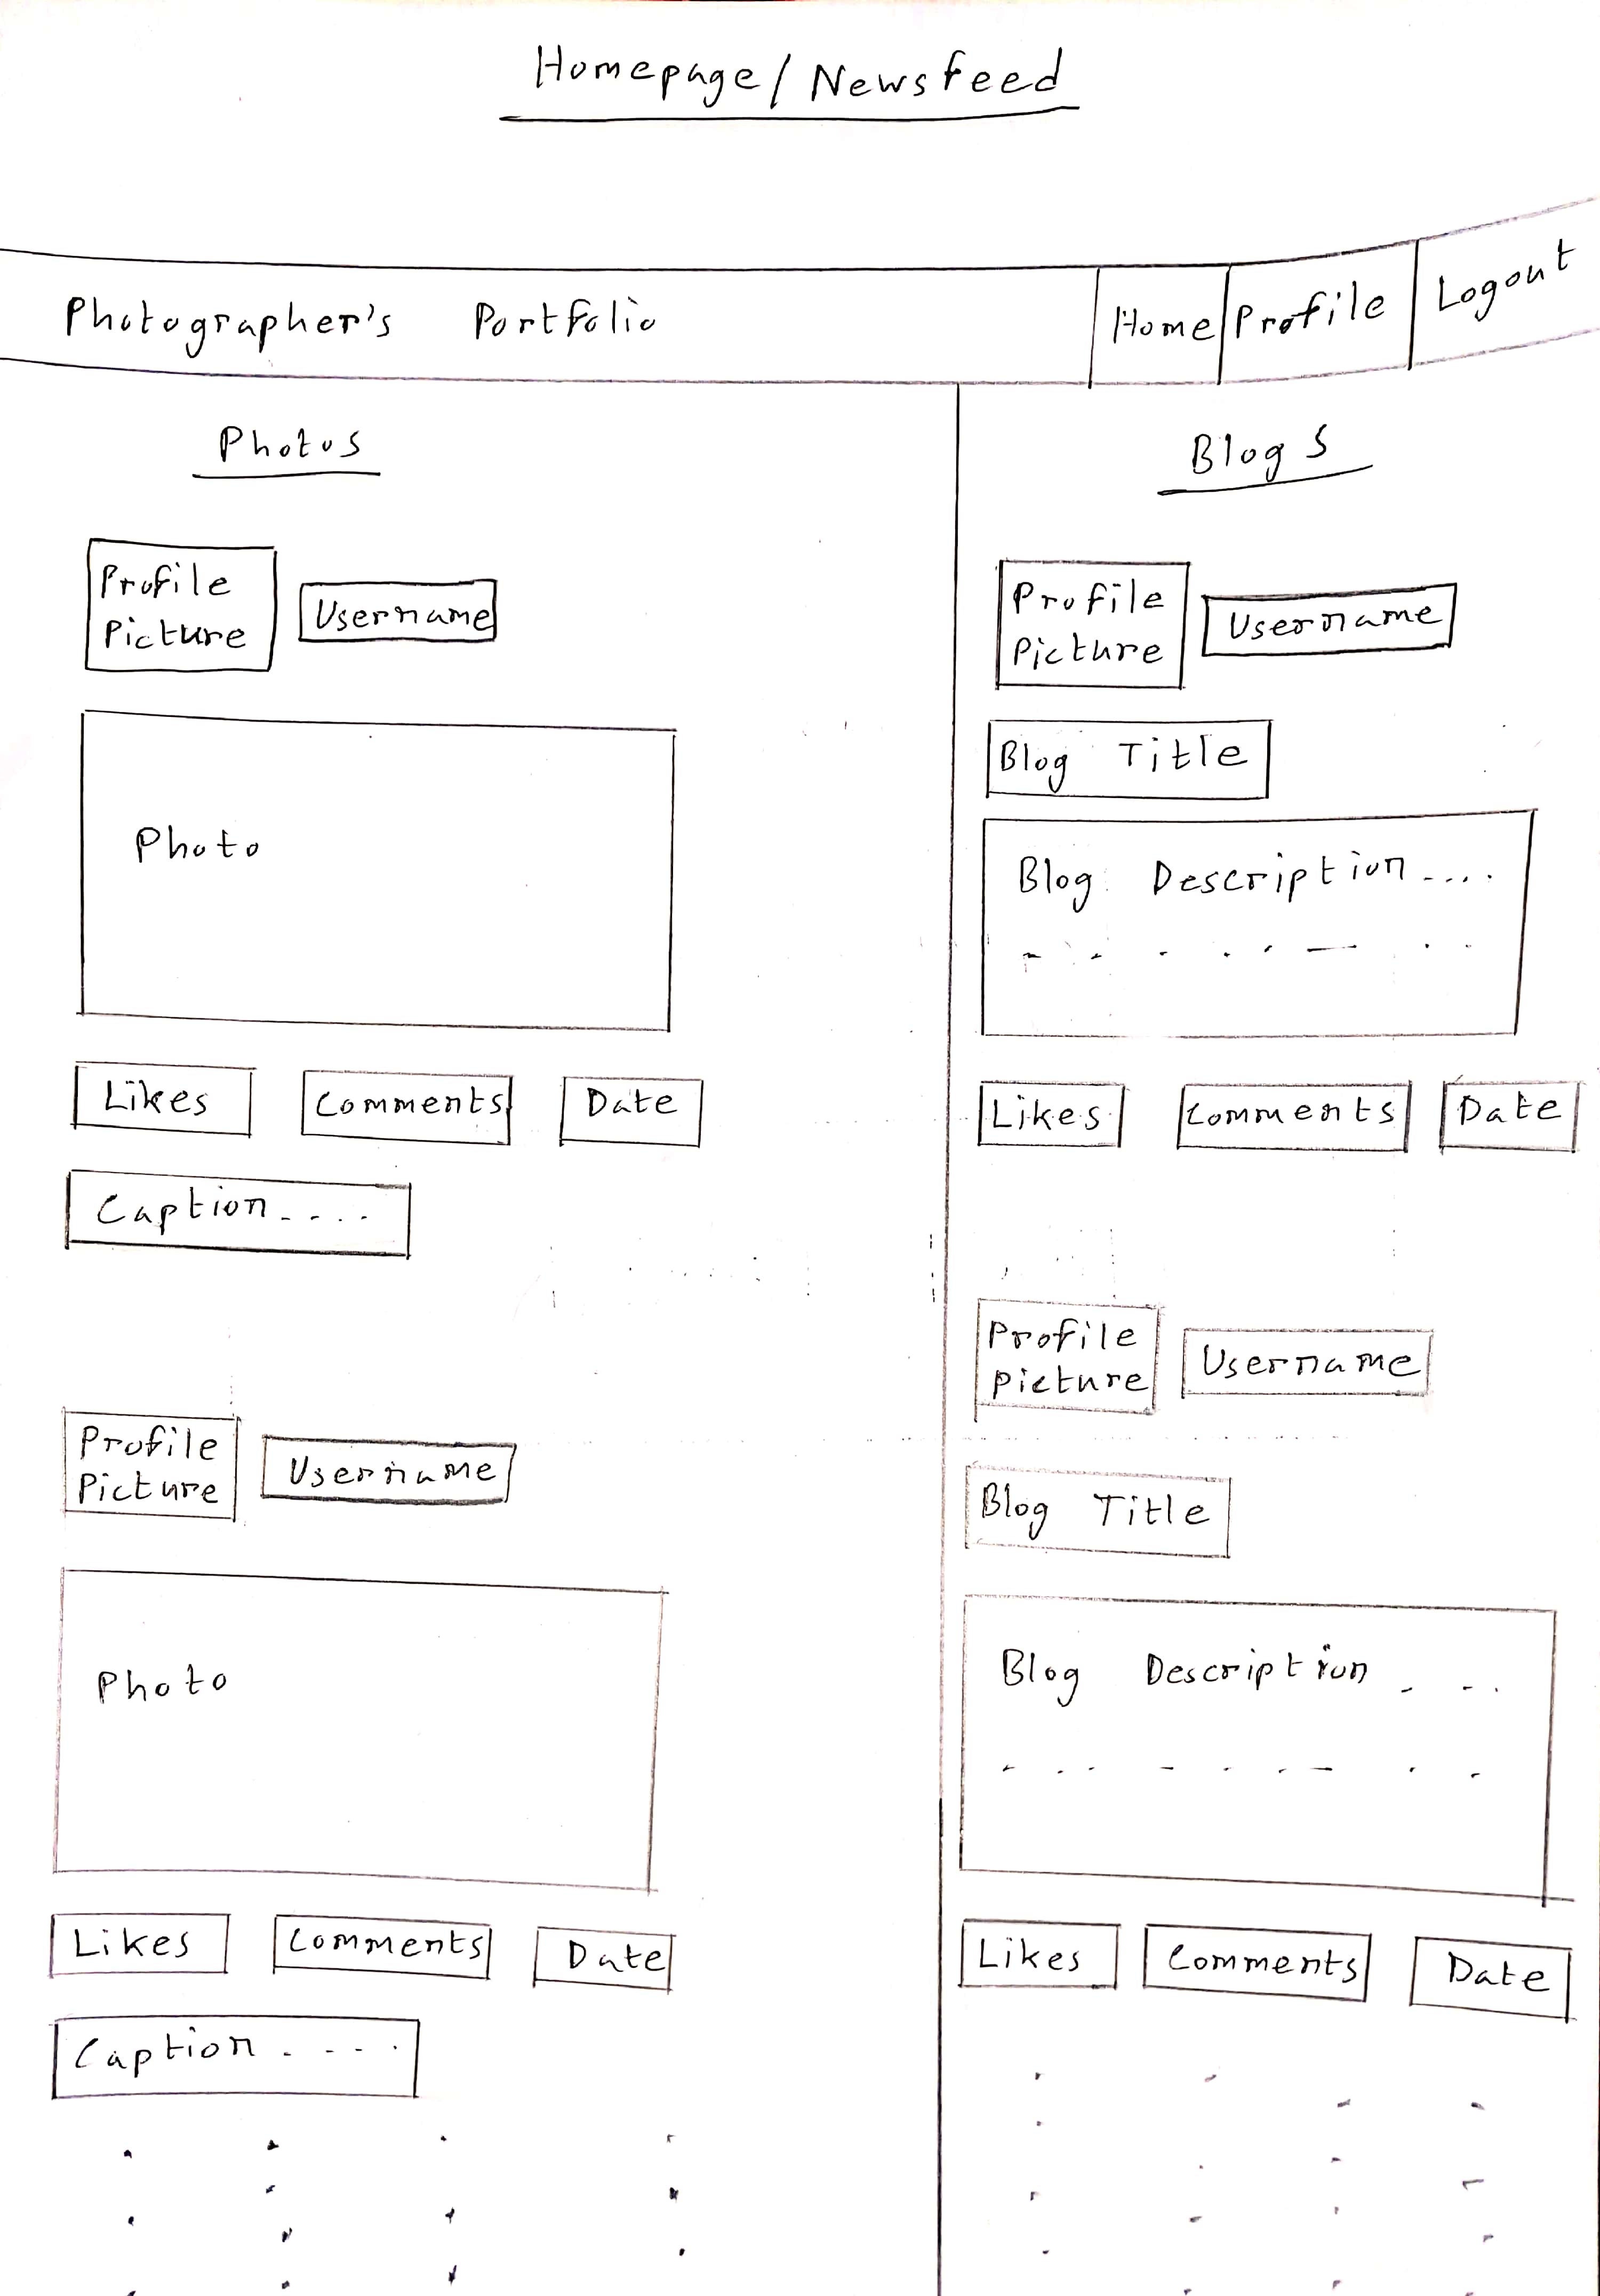 Homepage/Newsfeed
Photographer's Portfolio Home Profile Logout
Photos
Profile
Picture
Username
Photo
Likes Comments Date
Caption....
Profile
Picture
Username
Photo
Likes Comments Date
Caption....
Blogs
Profile
Picture
Username
Blog Title
Blog Description....
Likes Comments Date
Profile
Picture
Username
Blog Title
Blog Description...
Likes Comments Date